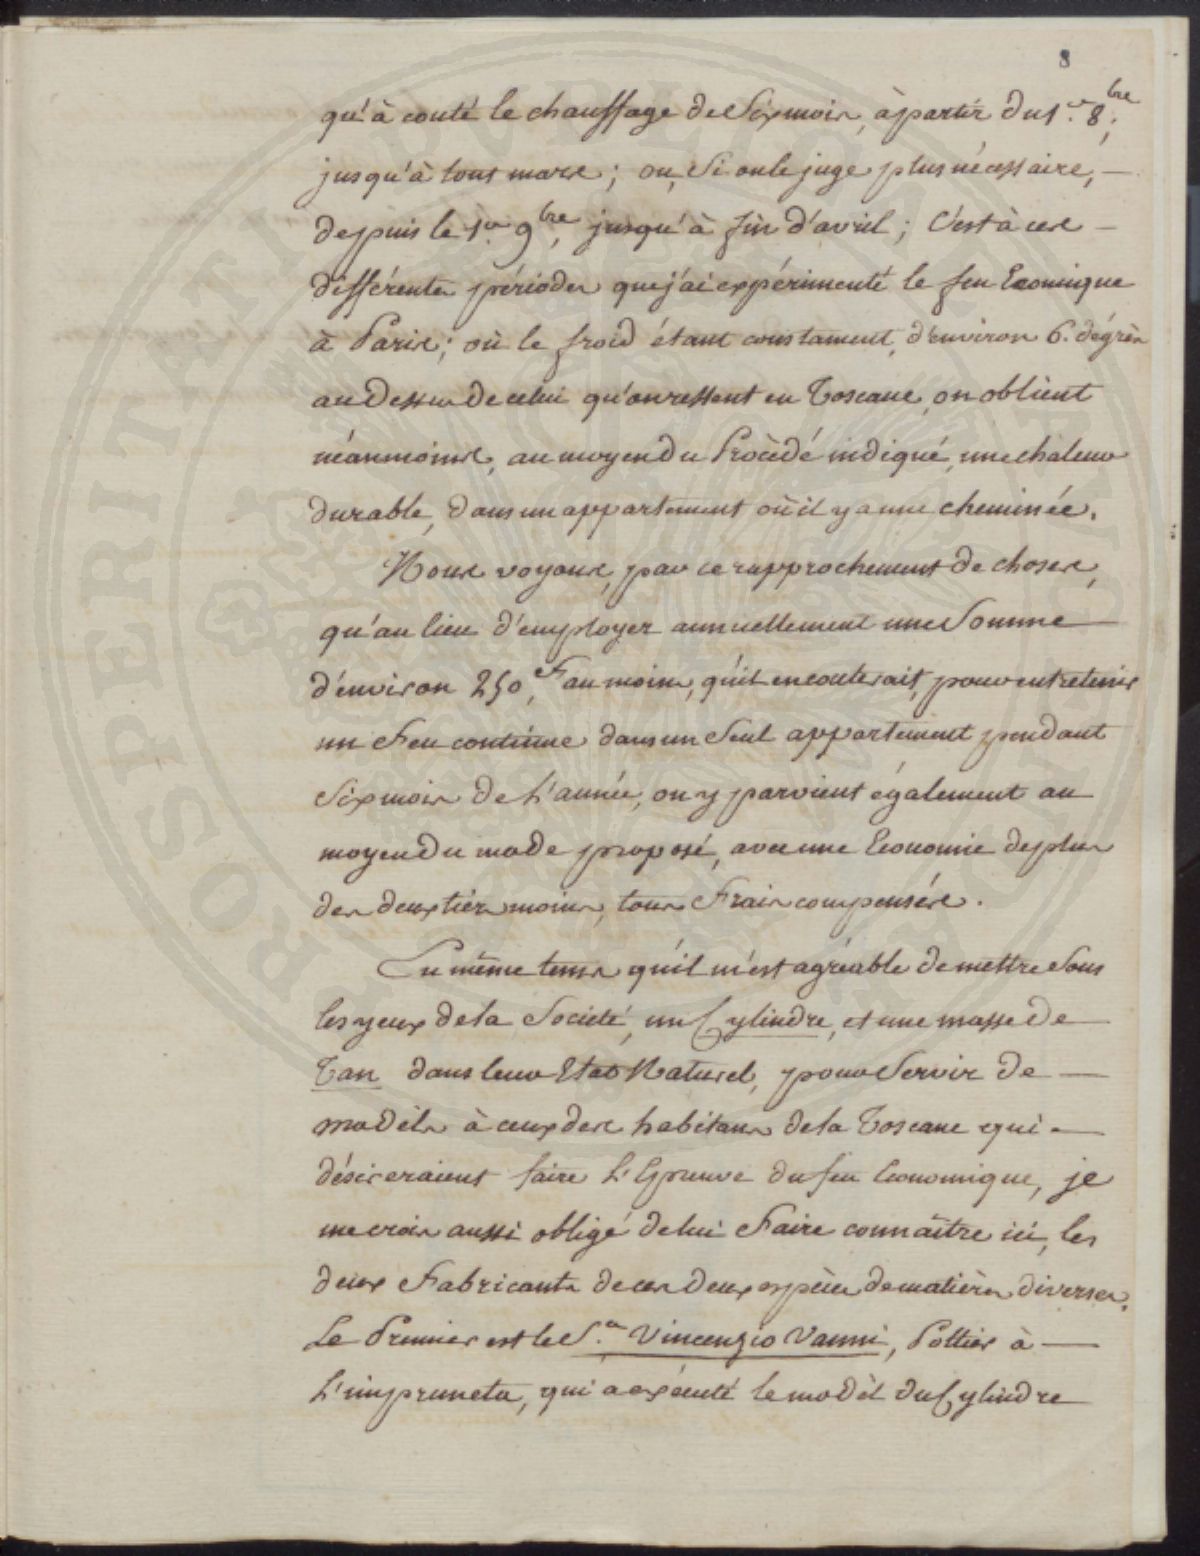 8
qu'à couté le chauffage de Six mois, à partir du 1.er 8.bre
jusqu'à tout mars; ou, Si on le juge plus nécessaire, —
depuis le 1.er 9.bre, jusqu'à fin d'avril; C'est à ces —
différentes périodes que j'ai expérimenté le feu Economique
à Paris; où le froid étant constament, d'environ 6. dégrès
au dessus de celui qu'on ressent en Toscane, on obtient
néanmoins, au moyen du Procédé indiqué, une chaleur
durable, dans un appartement où il y a une cheminée.
Nous voyons, par ce rapprochement de choses,
qu'au lieu d'employer annuellement une Somme
d'environ 250,F au moins, qu'il en couterait, pour entretenir
un Feu continue dans un Seul appartement pendant
Six mois de L'année, on y parvient également au
moyen du mode proposé, avec une Economie de plus
des deux tiers moins, tous Frais compensés.
En même tems qu'il m'est agréable de mettre Sous
les yeux de la Societé, un Cylindre, et une masse de
Tan dans leur Etat Naturel, pour Servir de —
modèls à ceux des habitans de la Toscane qui —
désireraient faire L'Epreuve du feu Economique, je
me crois aussi obligé de lui Faire connaître ici, les
deux Fabricants de ces deux espèces de matières diverses.
Le Premier est le S.r Vincenzio Vanni, Pottier à —
L'impruneta, qui a exécuté le modèl du Cylindre
PROSPERITATI PUBLICAE